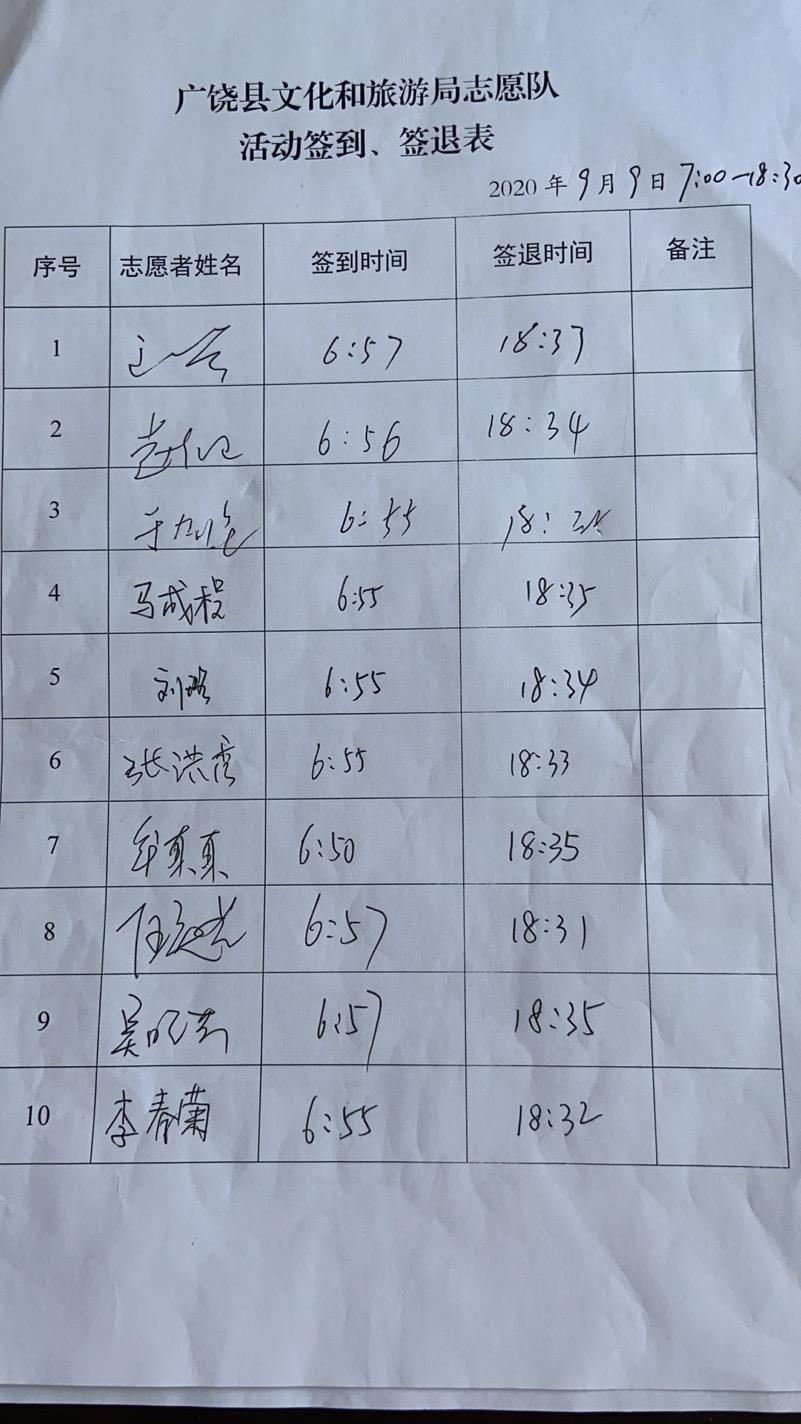 广饶县文化和旅游局志愿队
活动签到、签退表
2020 年 9 月 9 日 7:00-18:30
序号 志愿者姓名 签到时间 签退时间 备注
1 6:57 18:37
2 6:56 18:34
3 于 6:55 18:
4 马成程 6:55 18:35
5 刘璐 6:55 18:34
6 张洪秀 6:55 18:33
7 牟真真 6:50 18:35
8 任 6:57 18:31
9 吴 6:57 18:35
10 李春菊 6:55 18:32